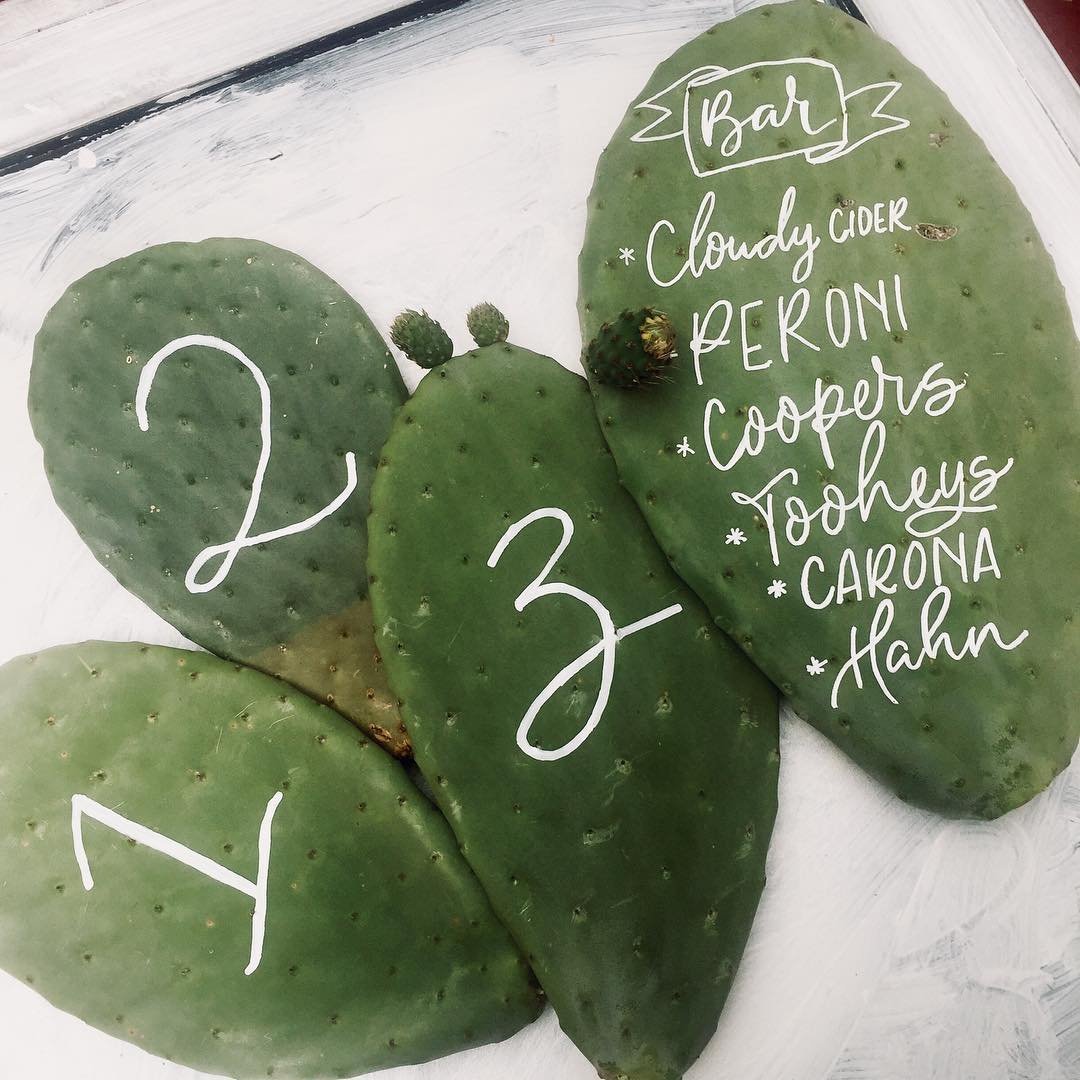 Bar
* Cloudy CIDER
PERONI
* Coopers
* Tooheys
* CARONA
* Hahn
2
3
1